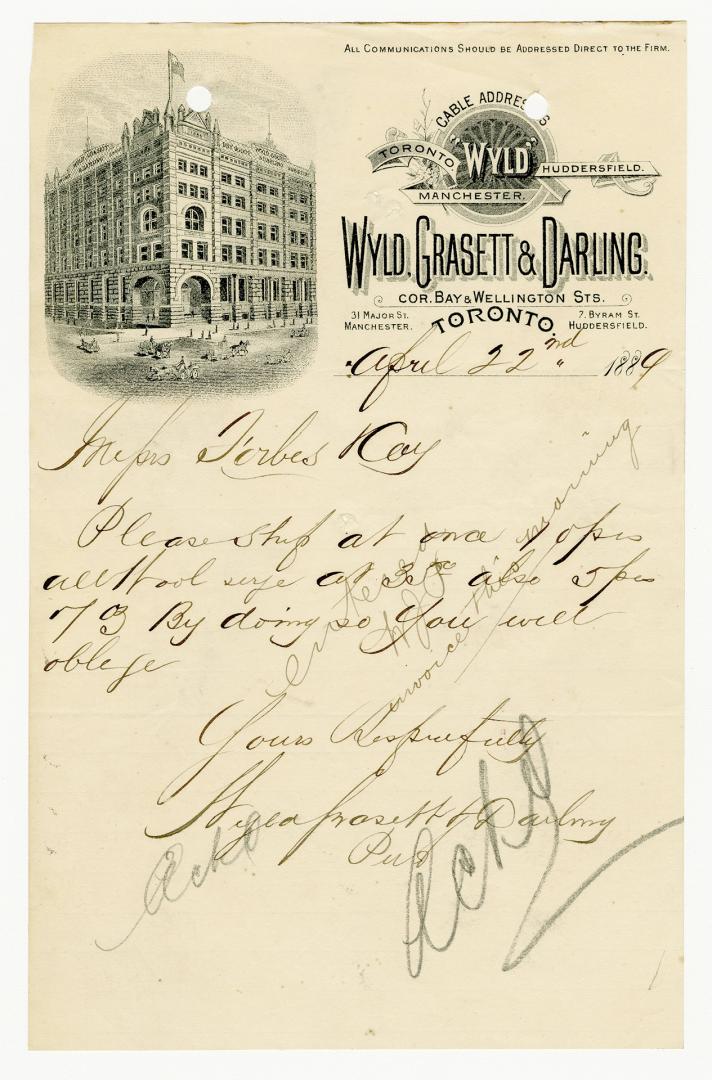 All Communications Should be Addressed Direct to the Firm.
CABLE ADDRESS
TORONTO "WYLD" HUDDERSFIELD.
MANCHESTER.
WYLD, GRASETT & DARLING.
COR. BAY & WELLINGTON STS.
31 MAJOR ST. MANCHESTER.
TORONTO.
7. BYRAM ST. HUDDERSFIELD.
April 22nd 1889
Messrs Forbes
Please Ship at once pcs
all Wool serge at also 5 pcs
73 By doing so you will
oblege
Yours Respectfully
Wyld Grasett & Darling
Entered
invoice this morning
Ackd
Ackd